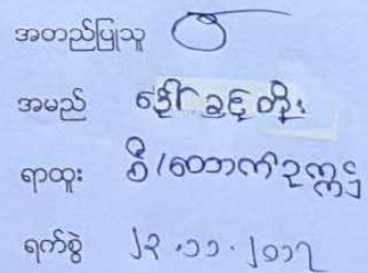 အတည်ပြုသူ
အမည် ဒေါ်ခင်တိုး
ရာထူး စီ/ထောက်ဥက္ကဋ္ဌ
ရက်စွဲ ၂၃.၁၁.၂၀၁၇